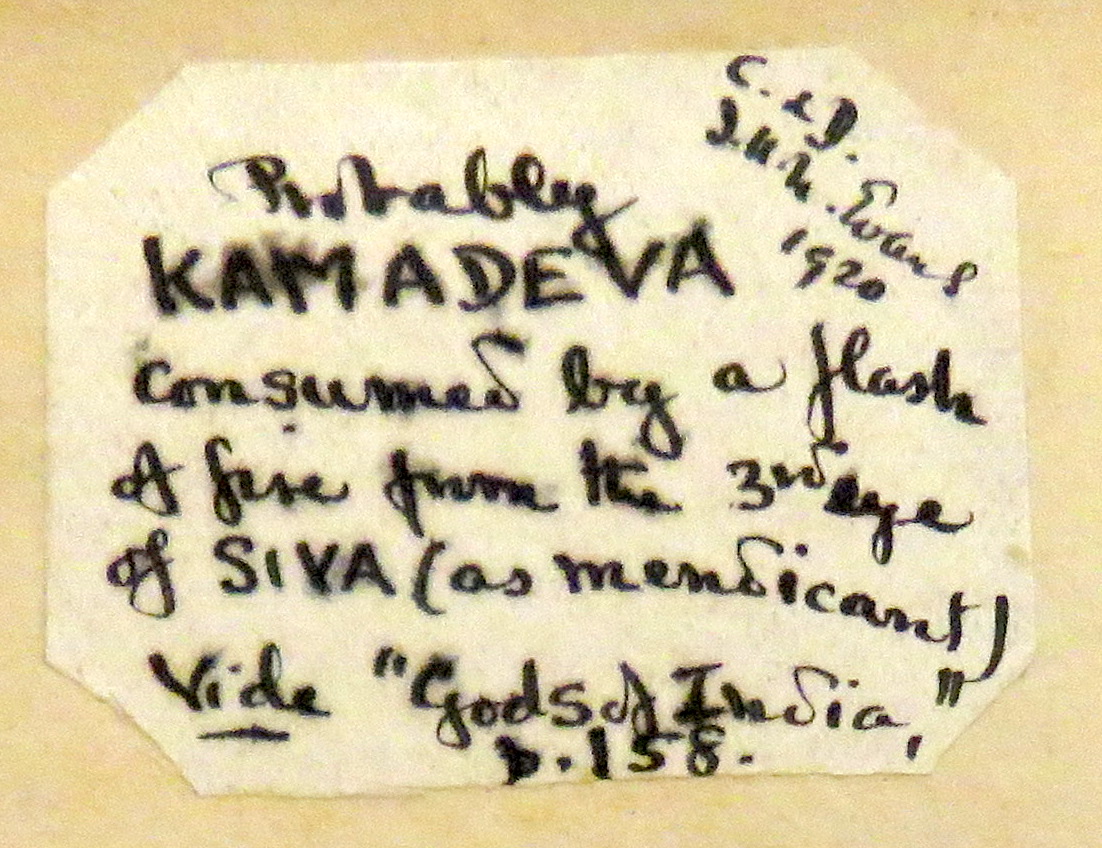 C. & D.
Evans
1920
Probably
KAMADEVA
consumed by a flash
of fire from the 3rd eye
of SIVA (as mendicant)
Vide "Gods of India,"
p. 158.